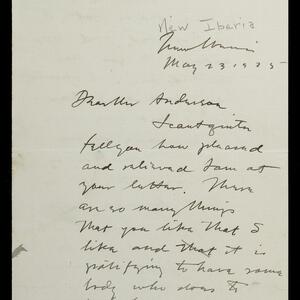 New Iberia
New Iberia
May 23 1925
Dear Mr Anderson
I cant quite
tell you how pleased
and relieved I am at
your letter. There
are so many things
that you like that I
like and that it is
gratifying to have some
body who does to